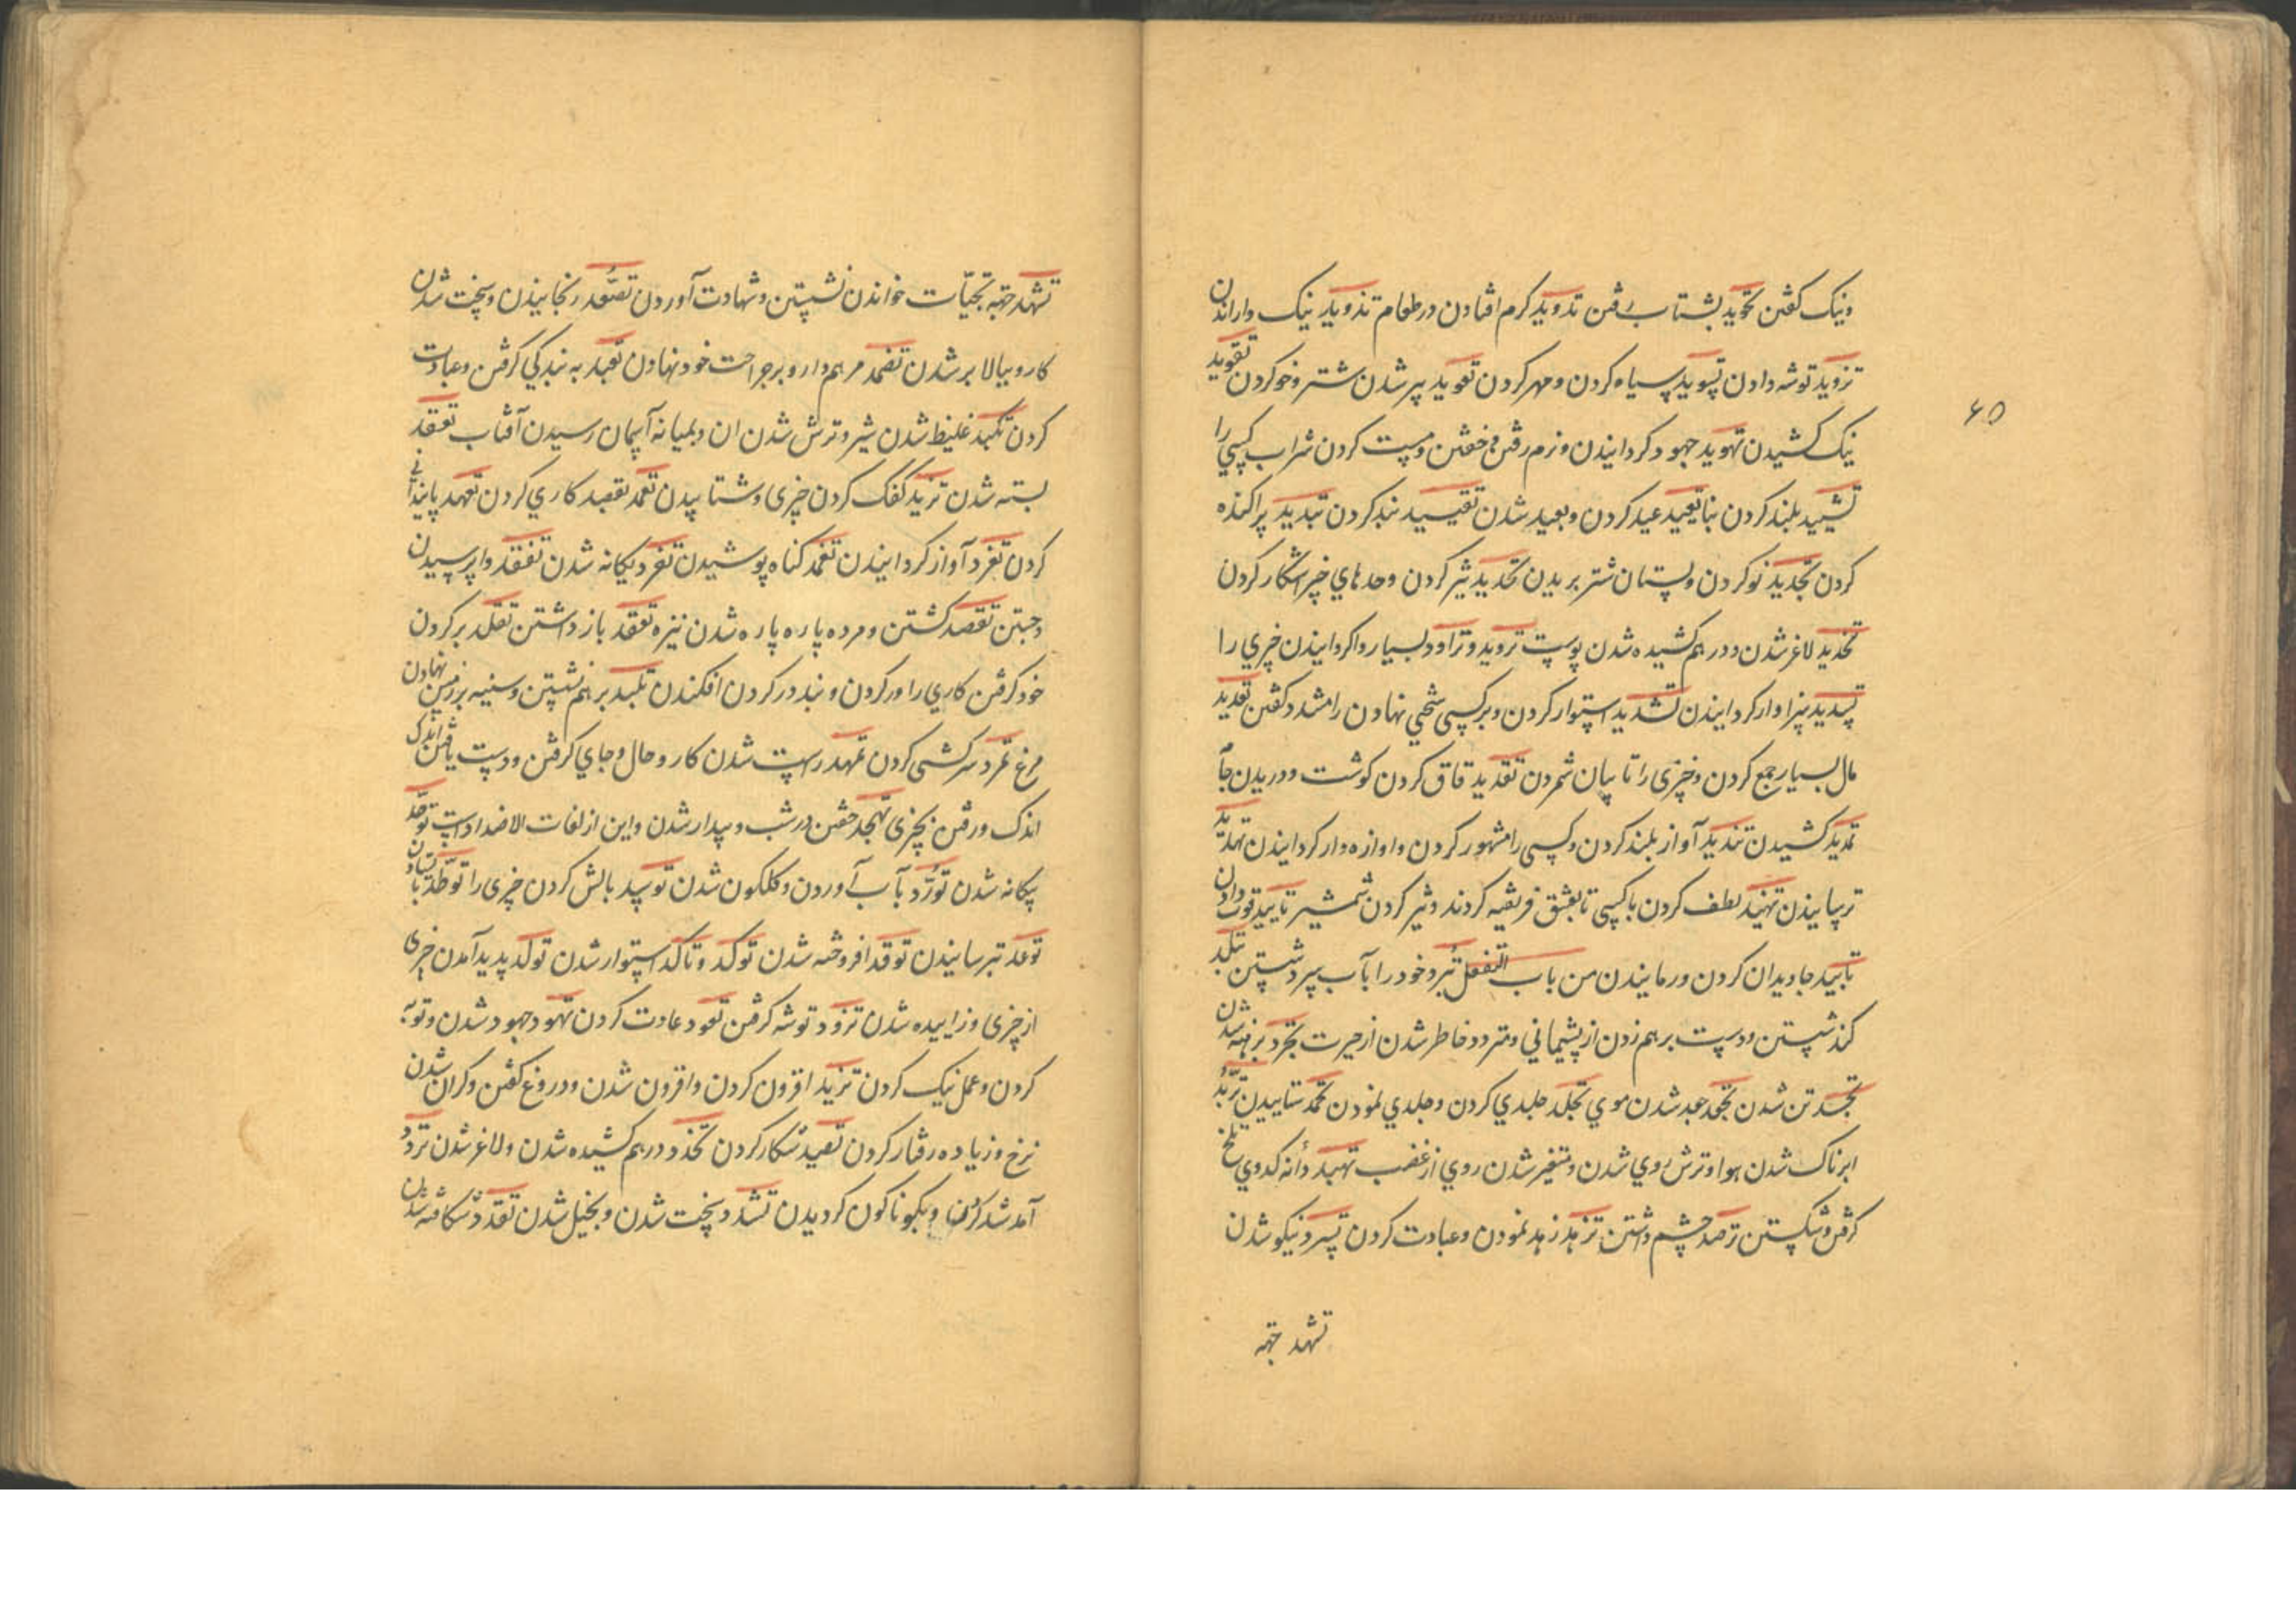 ونیک کفتن تخوید بشتاب رفتن تدوید کرم افتادن در طعام تذوید نیک واراندن
تزوید توشه دادن تسوید سیاه کردن و مهر کردن تعوید پیر شدن شتر و خو کردن تقوید
نیک کشیدن تهوید جهود کردانیدن و نرم رفتن و خفتن و مست کردن شراب کسی را
تشیید بلند کردن بنا تعیید عید کردن و بعید شدن تقیید بند کردن تبدید پراکنده
کردن تجدید نو کردن و پستان شتر بریدن تحدید تیز کردن وحدهای چیز اشکار کردن
تخدید لاغر شدن و درهم کشیده شدن پوست تروید و تراود بسیار واکردانیدن چیزی را
تسدید سزاوار کردانیدن تشدید استوار کردن و بر کسی سختی نهادن را مشدد کفتن تعدید
مال بسیار جمع کردن و چیزی را تا پیان شمردن تقدید قاق کردن کوشت و دریدن جا
تمدید کشیدن تندید آواز بلند کردن و کسی را مشهور کردن و اوازه وار کردانیدن تهدید
ترسانیدن تهنید لطف کردن با کسی تا بعشق فریفته کردند و تیز کردن شمشیر تایید قوت دادن
تابید جاویدان کردن و رمانیدن من باب التفعل تبرد خود را بآب سرد شستن تبلد
کند شستن و دست برهم زدن از پشیمانی و متردد خاطر شدن از حیرت تجرد برهنه شدن
تجسد تن شدن تجعد جعد شدن موی تجلد جلدی کردن و جلدی نمودن تحمد ستاییدن تربد
ابرناک شدن هوا و ترش روی شدن و متغیر شدن روی از غضب تهبد دانه کدوی تلخ
کرفتن و شکستن ترصد چشم داشتن تزهد زهد نمودن و عبادت کردن تسرد نیکو شدن
تشهد جتهه
۶۵
تشهد جتهه تحیّات خواندن نشستن و شهادت آوردن تصعّد رنجانیدن و سخت شدن
کار و ببالا بر شدن تضمد مرهم دارو بر جراحت خود نهادن تعبد به بندکی کرفتن و عبادت
کردن تکبد غلیظ شدن شیر و ترش شدن ان و بمیانه آسمان رسیدن آفتاب تعقد
بسته شدن تزبد کفک کردن چیزی و شتابیدن تعمد بقصد کاری کردن تعهد پایندانی
کردن تغرد آواز کردانیدن تغمد کناه پوشیدن تفرد یکانه شدن تفقد واپرسیدن
و جستن تقصد کشتن و مرده پاره پاره شدن نیزه تعقد باز داشتن تقلد بر کردن
خود کرفتن کاری را ور کردن و بند در کردن افکندن تلبد برهم نشستن و سینه بر زمین نهادن
مرغ تمرد سرکشی کردن تمهد راست شدن کار و حال و جای کرفتن و دست یافتن اندک
اندک ورفتن بچیزی تهجد خفتن در شب و بیدار شدن و این از لغات الاضداد است توحد
یکانه شدن تورّد بآب آوردن و کلکون شدن توسد بالش کردن چیزی را توطّد بایستادن
توعد ترسانیدن توقد افروخته شدن توکد و تاکد استوار شدن تولد پدید آمدن چیزی
از چیزی و زاییده شدن تزود توشه کرفتن تعود عادت کردن تهود جهود شدن و توبه
کردن و عمل نیک کردن تزید افزون کردن و افزون شدن و دروغ کفتن و کران شدن
نرخ و زیاده رفتار کردن تصید شکار کردن تخدد درهم کشیده شدن و لاغر شدن تردد
آمد شد کردن و بکوناکون کردیدن تشدد سخت شدن و بخیل شدن تقدد شکافته شدن